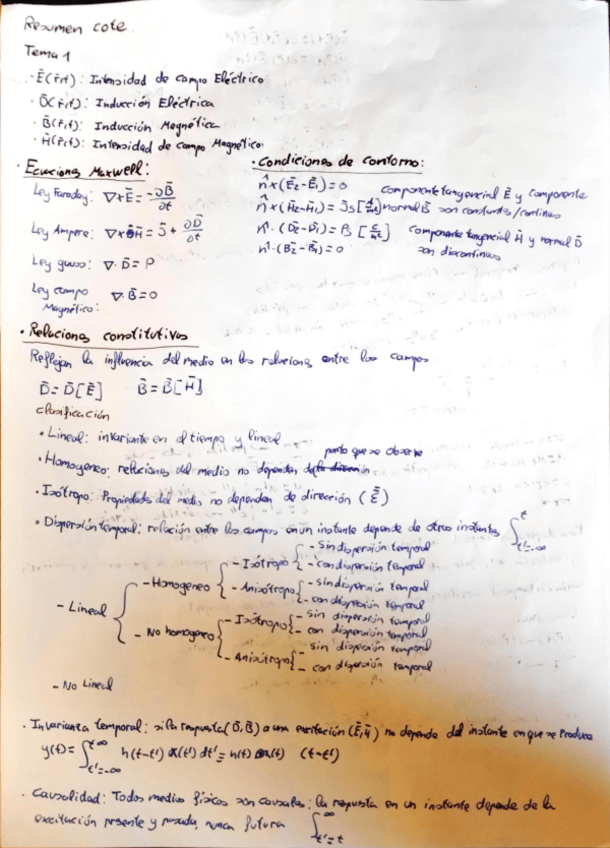 Resumen cote
Tema 1
· Ē(r̄,t): Intensidad de campo Eléctrico
· D̄(r̄,t): Inducción Eléctrica
· B̄(r̄,t): Inducción Magnética
· H̄(r̄,t): Intensidad de campo Magnético
· Ecuaciones Maxwell:
Ley Faraday: ∇×Ē = -∂B̄/∂t
Ley Ampere: ∇×H̄ = J̄ + ∂D̄/∂t
Ley gauss: ∇·D̄ = ρ
Ley campo Magnético: ∇·B̄ = 0
· Condiciones de contorno:
n̂×(Ē2-Ē1) = 0
n̂×(H̄2-H̄1) = J̄s [A/m]
n̂·(D̄2-D̄1) = ρs [C/m²]
n̂·(B̄2-B̄1) = 0
componente tangencial Ē y componente
normal B̄ son constantes/continuas
componente tangencial H̄ y normal D̄
son discontinuas
· Relaciones constitutivas
Reflejan la influencia del medio en las relaciones entre los campos
D̄ = D̄[Ē] B̄ = B̄[H̄]
clasificación
· Lineal: invariante en el tiempo y lineal
· Homogeneo: relaciones del medio no dependen del punto que se observe
· Isótropo: Propiedades del medio no dependen de dirección (Ē)
· Dispersión temporal: relación entre los campos en un instante depende de otros instantes ∫ t'=-∞ t
- Lineal
- Homogeneo
- Isótropo
- Sin dispersión temporal
- con dispersión temporal
- Anisótropo
- sin dispersión temporal
- con dispersión temporal
- No homogeneo
- Isótropo
- sin dispersión temporal
- con dispersión temporal
- Anisótropo
- sin dispersión temporal
- con dispersión temporal
- No Lineal
· Invarianza temporal: si la respuesta (D̄,B̄) a una excitación (Ē,H̄) no depende del instante en que se produce
y(t) = ∫ t'=-∞ t=∞ h(t-t') x(t') dt' = h(t) x(t) (t-t')
· Causalidad: Todos medios físicos son causales: la respuesta en un instante depende de la
excitación presente y pasada, nunca futura ∫ t'=t ∞